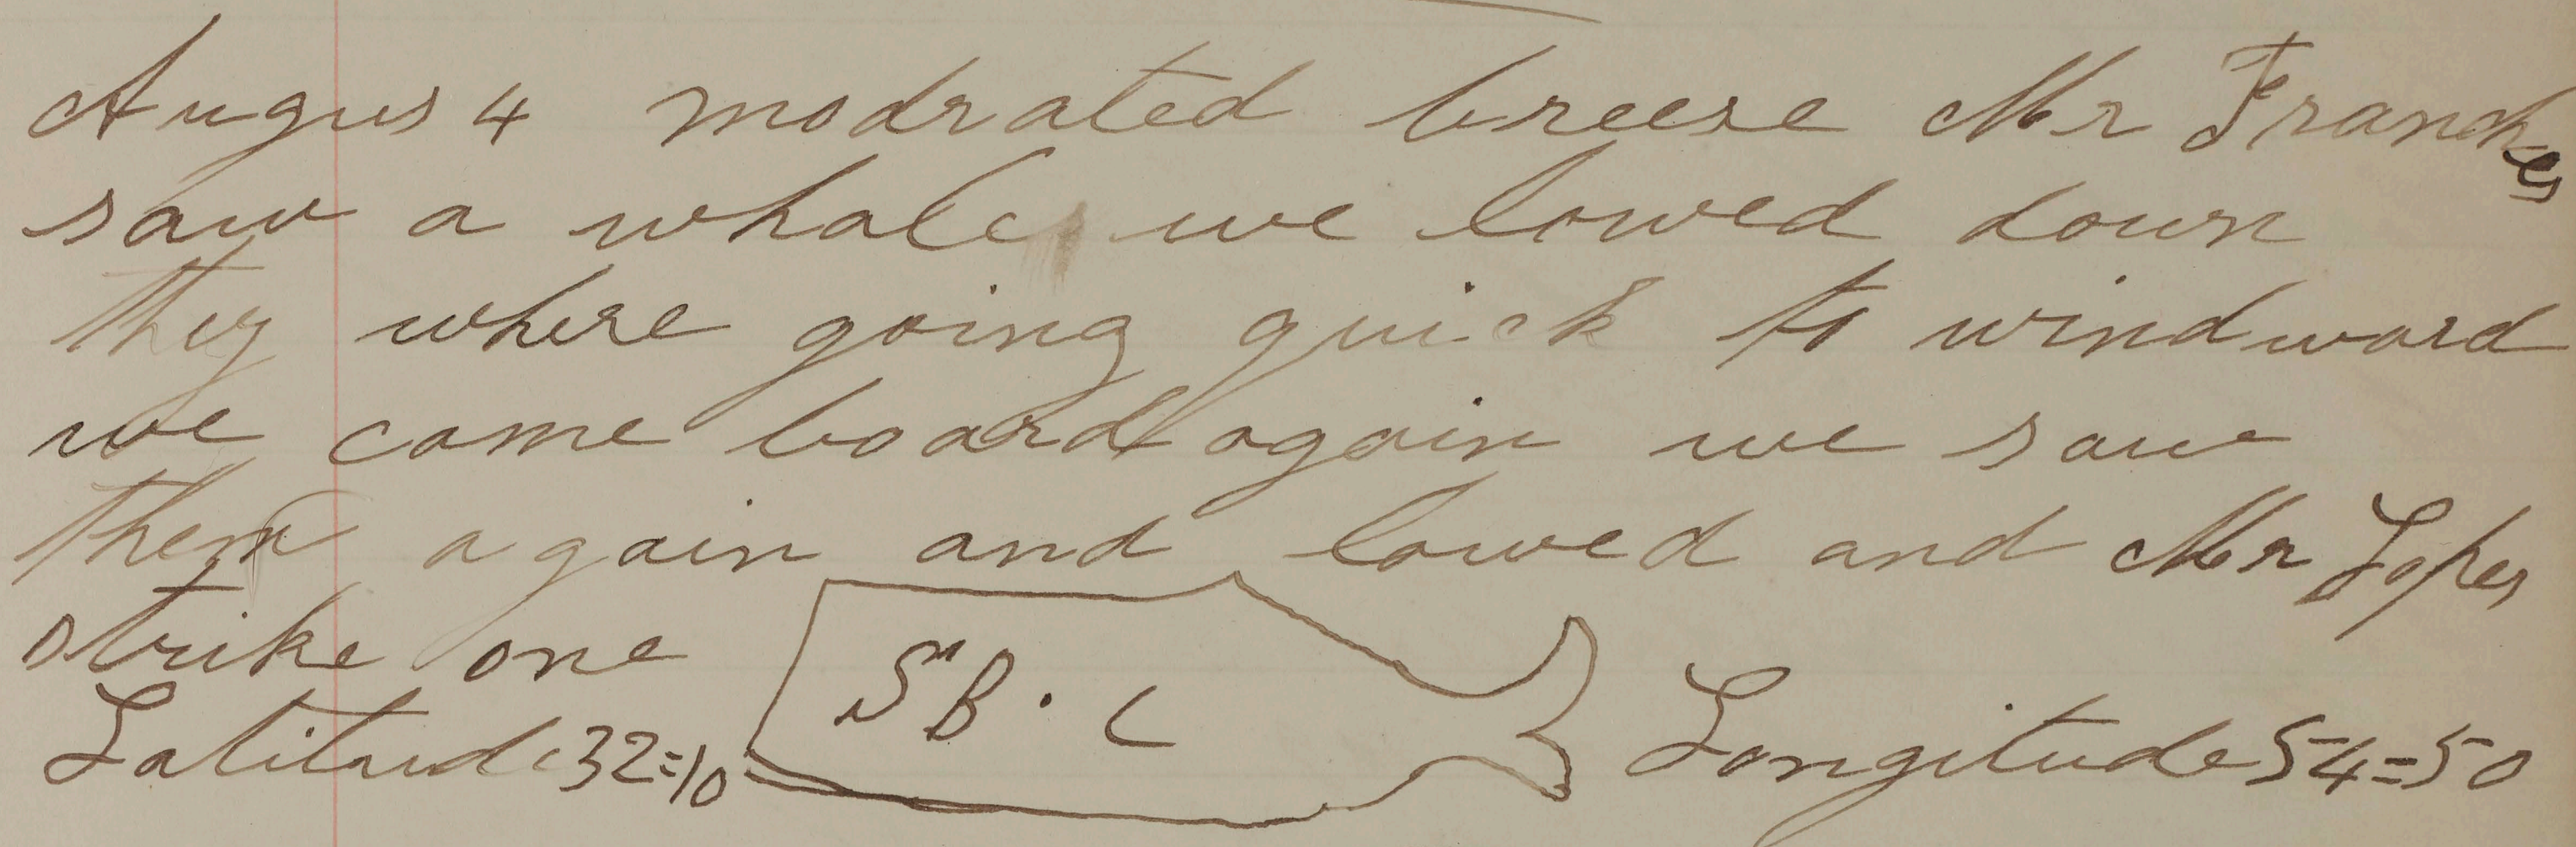 Augus 4 modrated breese Mr Franches
saw a whale we lowed down
they where going quick to windward
we come board again we saw
them again and lowed and Mr Lopes
strike one
SB. L
Latitude 32=10 Longitude 54=50